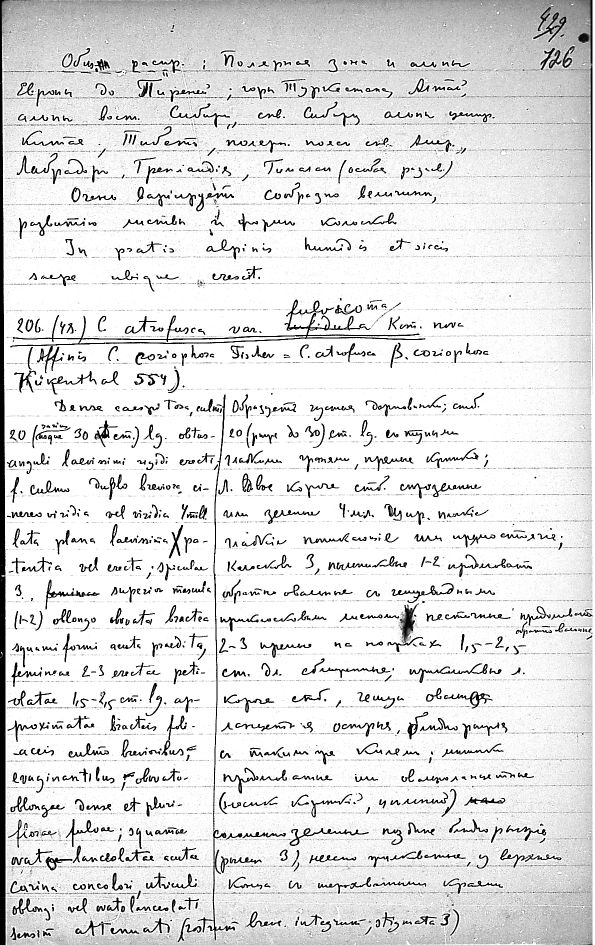 429.
726
Общ. распр.: Полярная зона и альпы
Европы до Пиреней; горы Туркестана, Алтай,
альпы вост. Сибири, свв. Сибирь, альпы центр.
Китая, Тибет, полярн. пояс свв. Амер.,
Лабрадор, Гренландия, Гималаи (особая разнов.)
Очень варіируетъ сообразно величины,
развитію листвы и формы колосков
In pratis alpinis humidis et siccis
saepe ubique crescit.
206. (48.) C. atrofusca var. fulvicoma Kom. nova
(Affinis C. coriophora Fischer = C. atrofusca β. coriophora
Kükenthal 554).
Dense caespitosa, culmi
20 (raro usque 30 cm.) lg. obtus-
anguli laevissimi rigidi erecti,
f. culmo duplo breviora, ci-
nereoviridia vel viridia 4 mill.
lata plana laevissima pa-
tentia vel erecta; spiculae
3, superior mascula
(1-2) oblongo obovata bractea
squamiformi acuta praedita,
femineae 2-3 erectae peti-
olatae 1,5-2,5 cm. lg. ap-
proximatae bracteis foli-
aceis culmo brevioribus,
evaginantibus, obovato-
oblongae dense et pluri-
florae fulvae; squamae
ovato lanceolatae acutae
carina concolori, utriculi
oblongi vel ovato lanceolati
sensim attenuati (rostrum brev. integrum; stigmata 3)
Образуетъ густыя дерновинки; стб.
20 (реже до 30) cm. lg. съ тупыми
гладкими гранями, прямые крепкие;
Л. вдвое короче стб. серозеленые
или зеленые 4 мл. шир. плоские
гладкие
Колосков 3, 1-2 продолговат
обратно овальные съ чешуевидным
прикосковым листом; пестичные продолговато
обратно овальные,
2-3 прямые на ножках 1,5-2,5
cm. дл. сближенные; л.
короче стб., чешуи овально
ланцетныя острыя, бледнорыжия
съ таким же килем; мешочки
продолговатые или овальноланцетные
(носик короткий, цельный,)
соломенно зеленые позднее бледнорыжие,
(рылец 3), у верхнего
конца съ шероховатыми краями